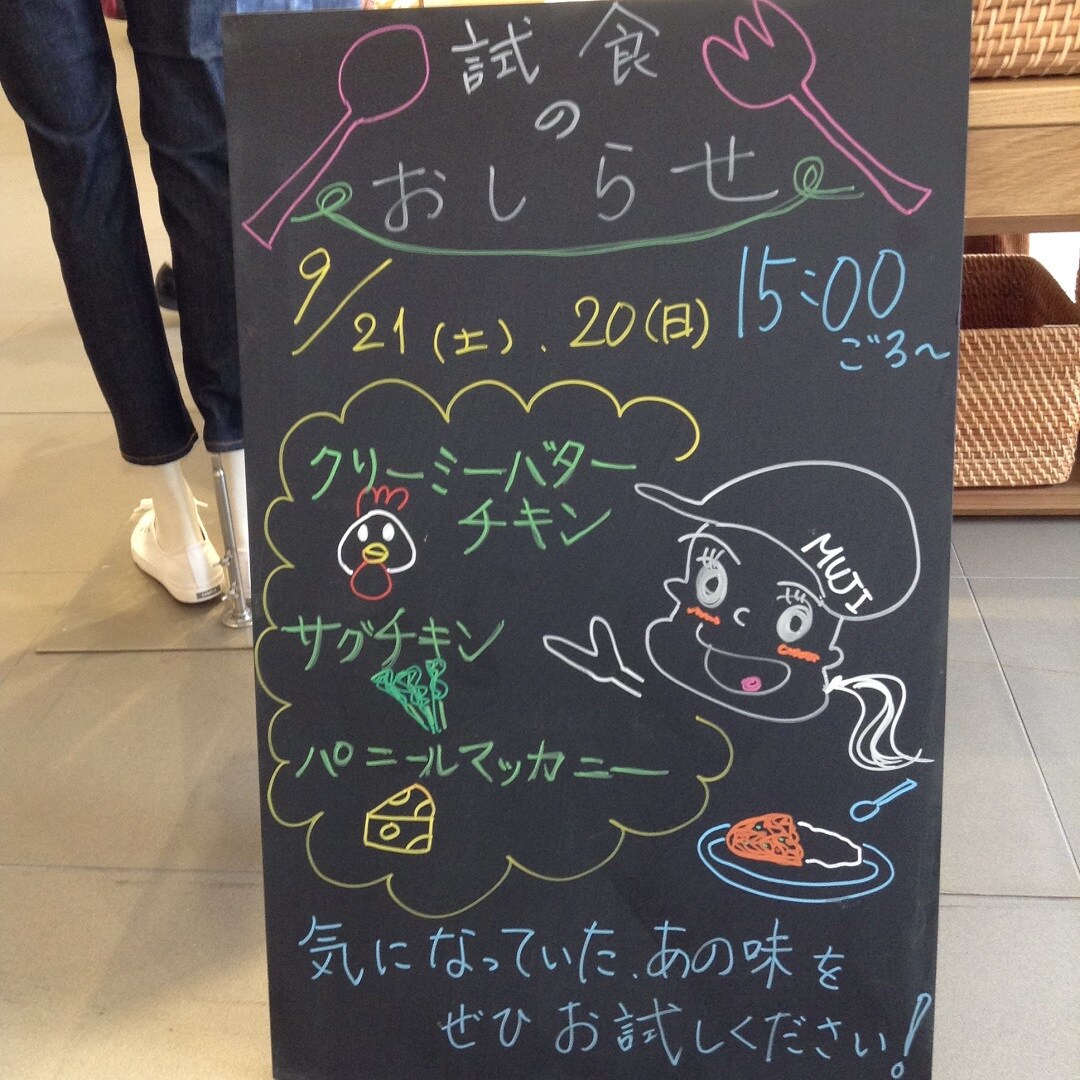 試食
の
おしらせ
9/21(土).20(日) 15:00
ごろ〜
クリーミーバター
チキン
MUJI
サグチキン
パニールマッカニー
気になっていた、あの味を
ぜひお試しください!